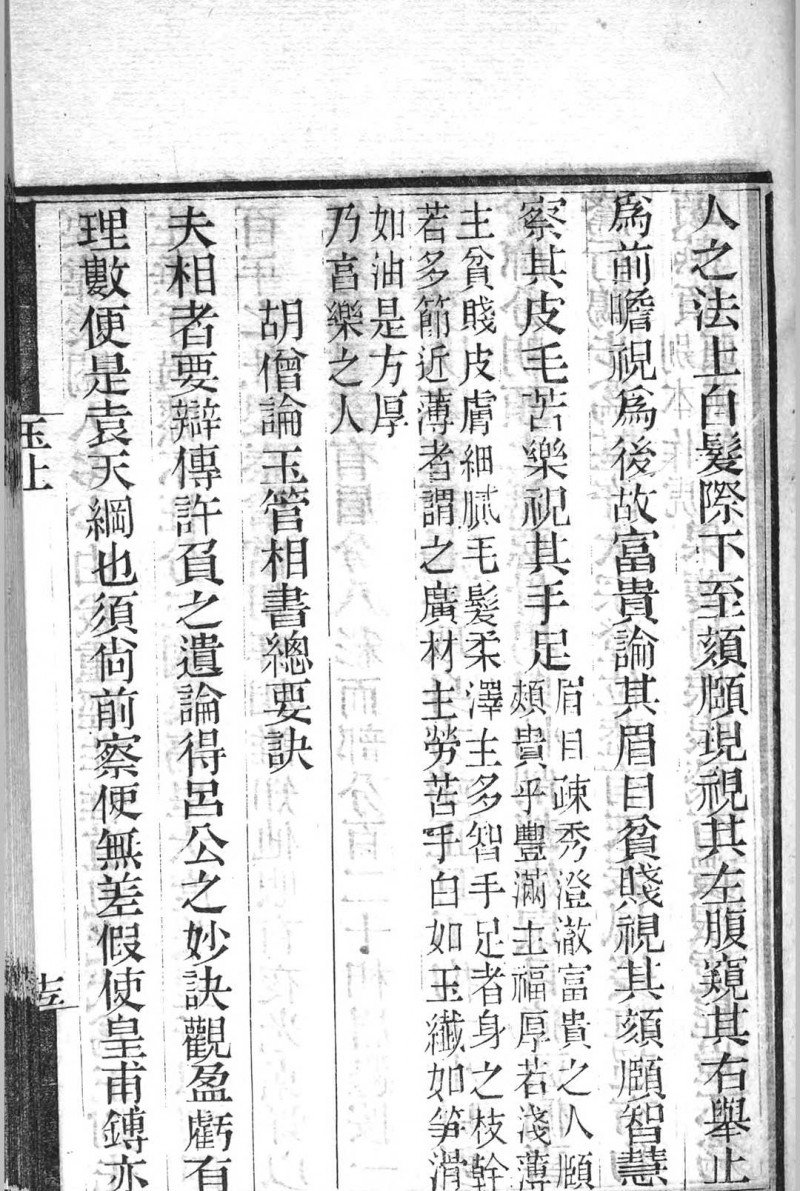 人之法上自髮際下至頦頤現視其左腹窺其右舉止
爲前瞻視爲後故富貴論其眉目貧賤視其頦頤智慧
察其皮毛苦樂視其手足
眉目疎秀澄澈富貴之人頤
頦貴乎豐滿主福厚若淺薄
主貧賤皮膚細膩毛髮柔澤主多智手足者身之枝幹
若多節近薄者謂之廣材主勞苦手白如玉纖如笋滑
如油是方厚
乃富樂之人
胡僧論玉管相書總要訣
夫相者要辯傳許負之遺論得呂公之妙訣觀盈虧有
理數便是袁天綱也須尙前察使無差假使皇甫鏄亦
玉上